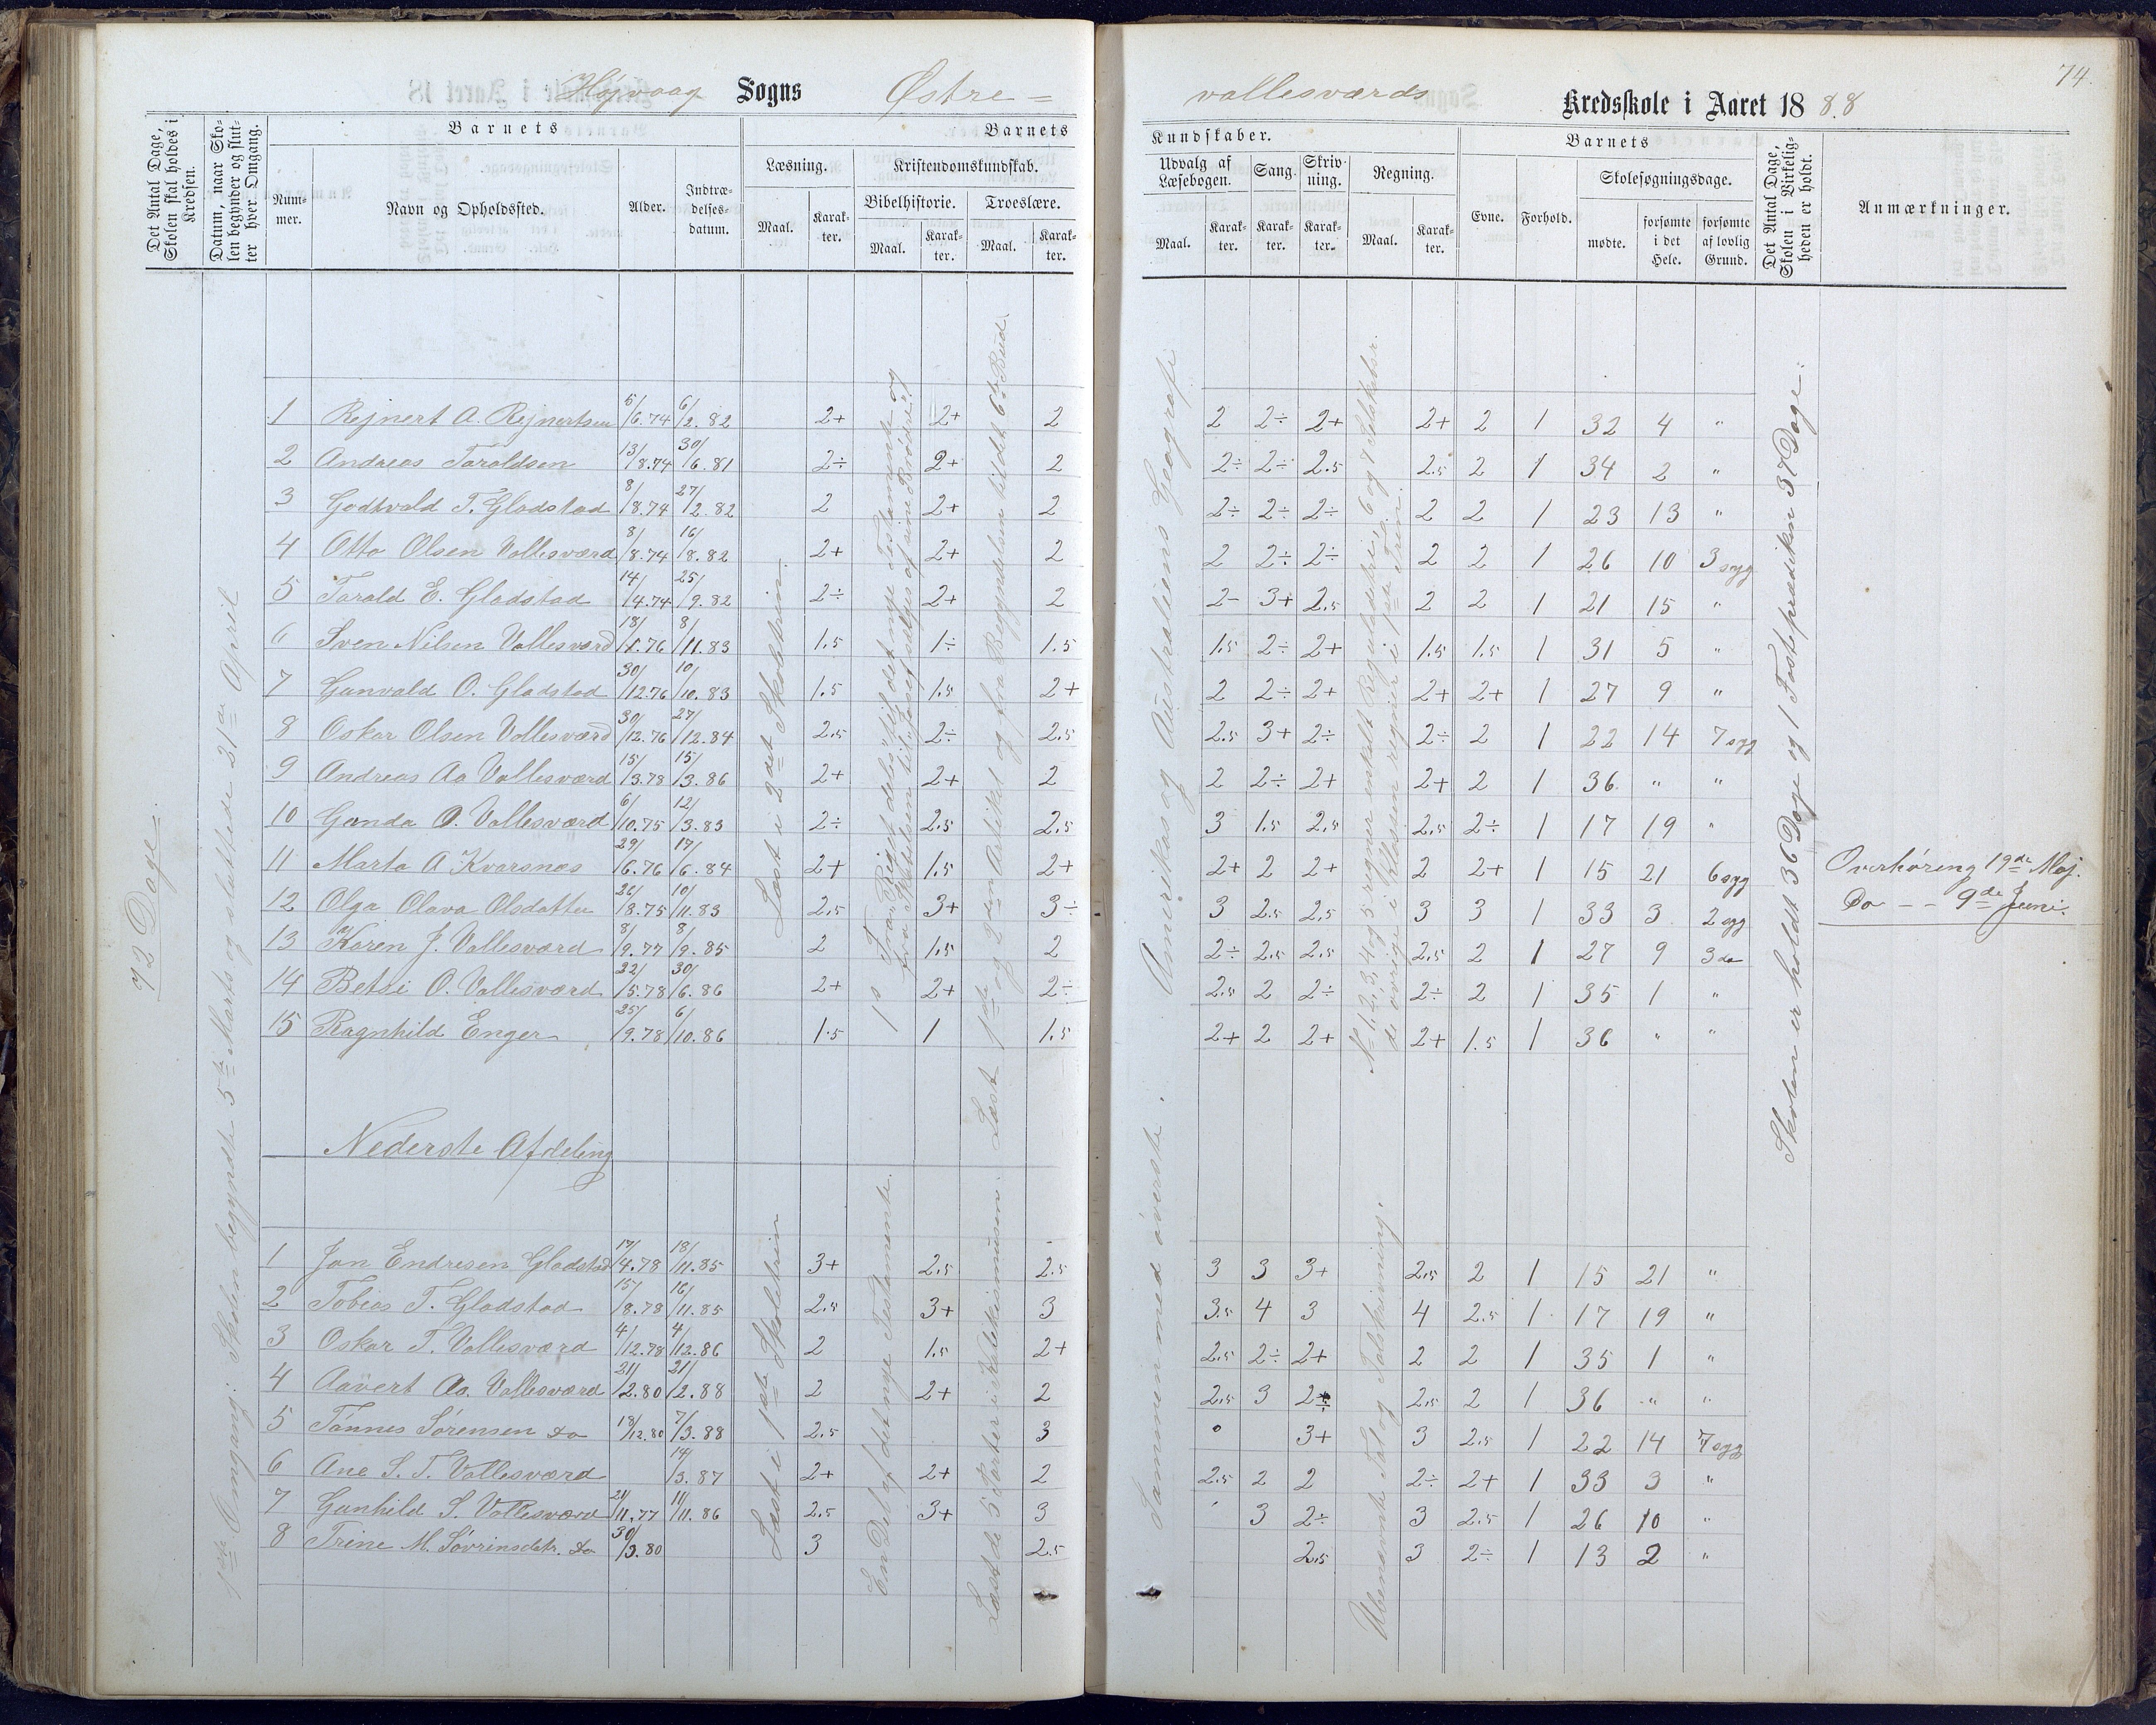 74.
Højvaag Sogns Østre =
vallesværds Kredsskole i Aaret 1888
Det Antal Dage, Skolen skal holdes i Kredsen.
Datum, naar Skolen begynder og slutter hver Omgang.
Barnets
Nummer.
Navn og Opholdssted.
Alder.
Indtrædelsesdatum.
Barnets
Læsning.
Maal.
Karakter.
Kristendomskundskab.
Bibelhistorie.
Maal.
Karakter.
Troeslære.
Maal.
Karakter.
Kundskaber.
Udvalg af Læsebogen.
Maal.
Karakter.
Sang.
Karakter.
Skrivning.
Karakter.
Regning.
Maal.
Karakter.
Barnets
Evne.
Forhold.
Skolesøgningsdage.
mødte.
forsømte i det Hele.
forsømte af lovlig Grund.
Det Antal Dage, Skolen i Virkeligheden er holdt.
Anmærkninger.
72 Dage.
1ste Omgang: Skolen begyndte 5te Marts og sluttede 21de April
Læst i 2det Skoletrin.
1s Fra "Riget deles" til det nye Testamente og
fra "Skabelsen til "Josef sælges af sine Brødre"
Læst 1ste og 2den Artikel og fra Begyndelsen til det 6te Bud.
Amerikas og Australiens Geografi
No 1, 2, 3, 4 og 5 regner enskelt Reguladetri, 6 og 7
de øvrige i Klassen regner i
Skolen er holdt 36 Dage og 1 Fasteprædiken 37 Dage.
1 Rejnert A. Rejnertsen 5/6.74 6/2.82 2+ 2+ 2 2 2÷ 2+ 2+ 2 1 32 4 "
2 Andreas Taraldsen 13/8.74 30/6.81 2÷ 2+ 2 2÷ 2÷ 2.5 2.5 2 1 34 2 "
3 Godtvald T. Gladstad 8/8.74 27/2.82 2 2+ 2 2÷ 2÷ 2÷ 2 2 1 23 13 "
4 Otto Olsen Vallesværd 8/8.74 16/8.82 2+ 2+ 2 2 2÷ 2÷ 2 2 1 26 10 3 syg
5 Tarald E. Gladstad 14/4.74 25/9.82 2÷ 2+ 2 2- 3+ 2.5 2 2 1 21 15 "
6 Sven Nilsen Vallesværd 18/1.76 8/11.83 1.5 1÷ 1.5 1.5 2÷ 2+ 1.5 1.5 1 31 5 "
7 Gunvald O. Gladstad 30/12.76 10/10.83 1.5 1.5 2+ 2 2÷ 2+ 2+ 2+ 1 27 9 "
8 Oskar Olsen Vallesværd 30/12.76 27/12.84 2.5 2÷ 2.5 2.5 3+ 2÷ 2÷ 2 1 22 14 7 syg
9 Andreas Aa Vallesværd 15/3.78 15/3.86 2+ 2+ 2 2 2÷ 2+ 2+ 2 1 36 " "
10 Gunda O. Vallesværd 6/10.75 12/3.83 2÷ 2.5 2.5 3 1.5 2.5 2.5 2÷ 1 17 19 "
11 Marta A Kvarsnæs 29/6.76 17/6.84 2+ 1.5 2+ 2+ 2 2+ 2 2+ 1 15 21 6 syg Overhøring 19de Maj.
12 Olga Olava Olsdatter 26/8.75 10/11.83 2.5 3+ 3÷ 3 2.5 2.5 3 3 1 33 3 2 syg Do - - 9de Juni.
13 Karen J. Vallesværd 8/9.77 8/9.85 2 1.5 2 2÷ 2.5 2.5 2.5 2 1 27 9 3 do
14 Betsi O. Vallesværd 22/5.78 30/6.86 2+ 2+ 2÷ 2.5 2 2÷ 2÷ 2 1 35 1 "
15 Ragnhild Enger 25/9.78 6/10.86 1.5 1 1.5 2+ 2 2+ 2+ 1.5 1 36 " "
Nederste Afdeling
Læst i 1ste Skoletrin
En Del af det nye Testamente.
Læst de 5 Parter i Katekismusen.
Sammen med øverste.
Ubenævnte Tal og Talskrivning.
1 Jon Endresen Gladstad 17/4.78 18/11.85 3+ 2.5 2.5 3 3 3+ 2.5 2 1 15 21 "
2 Tobias T. Gladstad 15/8.78 16/11.85 2.5 3+ 3 3.5 4 3 4 2.5 1 17 19 "
3 Oskar T. Vallesværd 4/12.78 4/12.86 2 1.5 2+ 2.5 2÷ 2+ 2 2 1 35 1 "
4 Aavert Aa. Vallesværd 21/2.80 21/2.88 2 2+ 2 2.5 3 2÷ 2.5 2 1 36 " "
5 Tønnes Sørensen do 18/12.80 7/3.88 2.5 3 0 3+ 3 2.5 1 22 14 7 syg
6 Ane S. T. Vallesværd 14/3.87 2+ 2+ 2 2.5 2 2 2÷ 2+ 1 33 3 "
7 Gunhild S. Vallesværd 21/11.77 11/11.86 2.5 3+ 3 3 2÷ 3 2.5 1 26 10 "
8 Trine M. Søvrinsdatr. do 30/3.80 3 2.5 2.5 3 2÷ 1 13 2 "